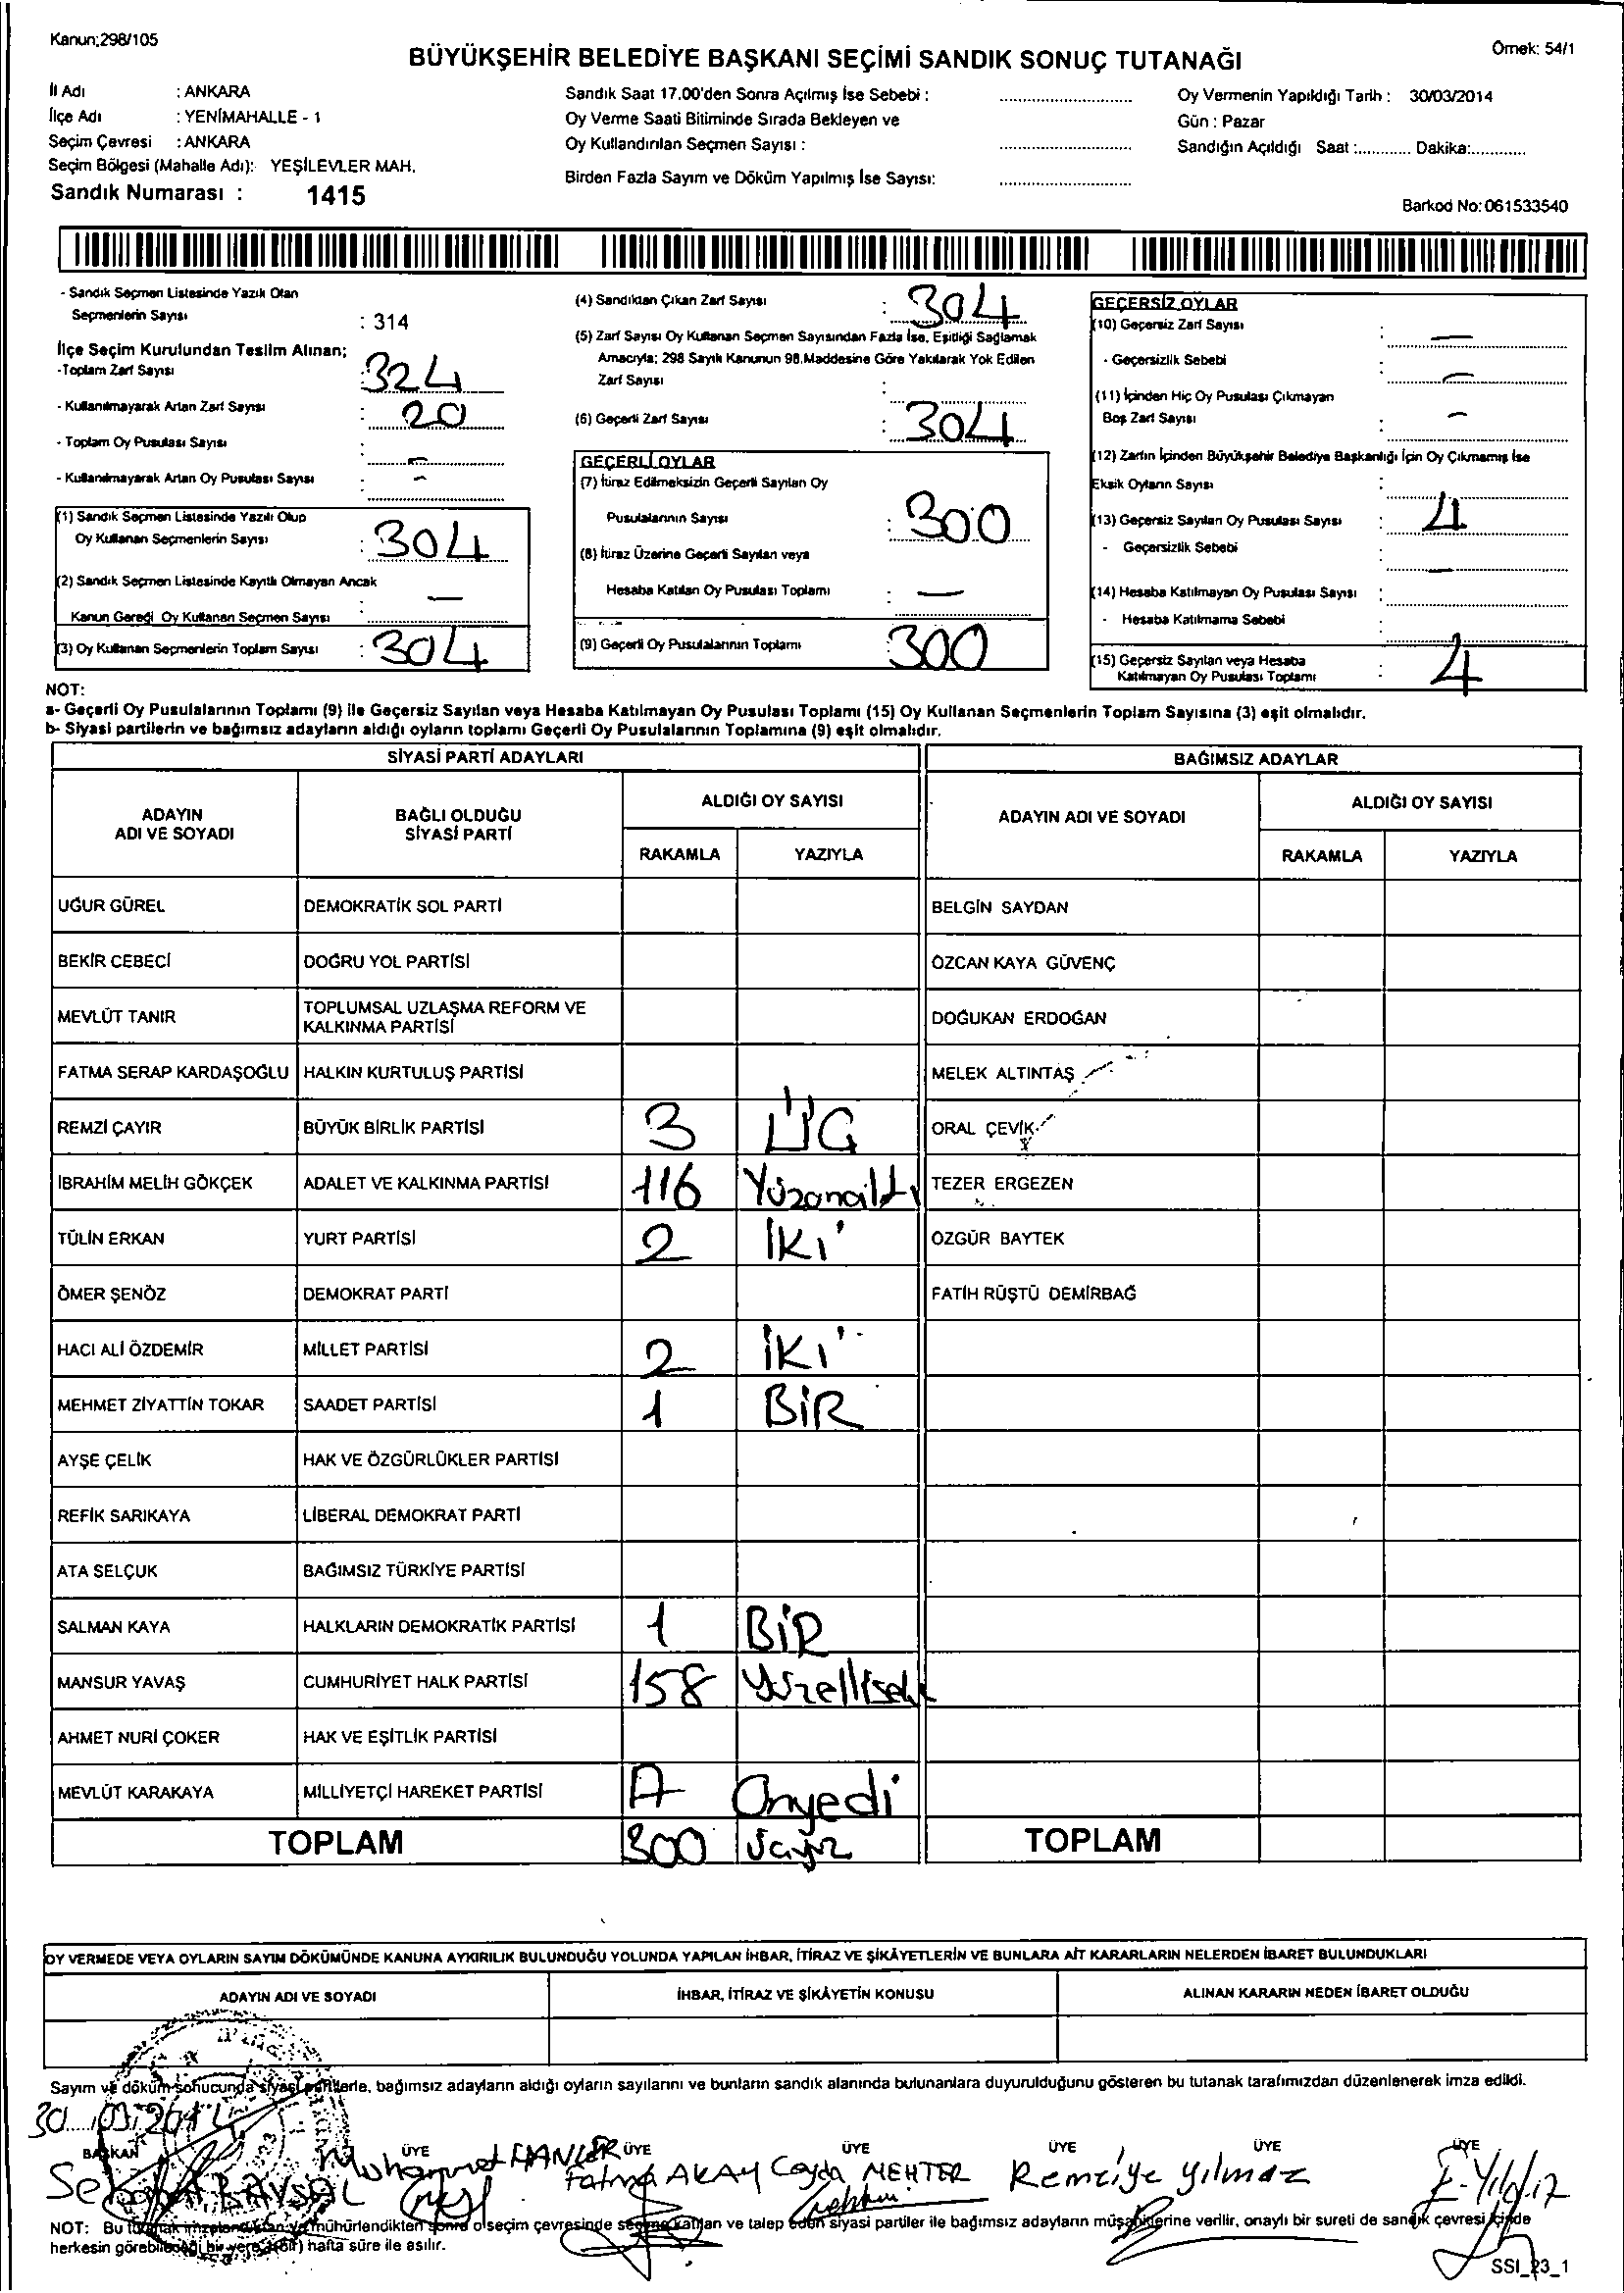 Kanun;298/105
Örnek: 54/1
BÜYÜKŞEHİR BELEDİYE BAŞKANI SEÇİMİ SANDIK SONUÇ TUTANAĞI
İl Adı : ANKARA
İlçe Adı : YENİMAHALLE - 1
Seçim Çevresi : ANKARA
Seçim Bölgesi (Mahalle Adı): YEŞİLEVLER MAH.
Sandık Numarası : 1415
Sandık Saat 17.00'den Sonra Açılmış İse Sebebi :
Oy Verme Saati Bitiminde Sırada Bekleyen ve
Oy Kullandırılan Seçmen Sayısı :
Birden Fazla Sayım ve Döküm Yapılmış İse Sayısı:
Oy Vermenin Yapıldığı Tarih : 30/03/2014
Gün : Pazar
Sandığın Açıldığı Saat :............ Dakika:............
Barkod No: 061533540
- Sandık Seçmen Listesinde Yazılı Olan
Seçmenlerin Sayısı : 314
İlçe Seçim Kurulundan Teslim Alınan;
-Toplam Zarf Sayısı : 324
- Kullanılmayarak Artan Zarf Sayısı : 20
- Toplam Oy Pusulası Sayısı : –
- Kullanılmayarak Artan Oy Pusulası Sayısı : –
(1) Sandık Seçmen Listesinde Yazılı Olup
Oy Kullanan Seçmenlerin Sayısı : 304
(2) Sandık Seçmen Listesinde Kayıtlı Olmayan Ancak
Kanun Gereği Oy Kullanan Seçmen Sayısı : –
(3) Oy Kullanan Seçmenlerin Toplam Sayısı : 304
(4) Sandıktan Çıkan Zarf Sayısı : 304
(5) Zarf Sayısı Oy Kullanan Seçmen Sayısından Fazla İse, Eşitliği Sağlamak
Amacıyla; 298 Sayılı Kanunun 98.Maddesine Göre Yakılarak Yok Edilen
Zarf Sayısı :
(6) Geçerli Zarf Sayısı : 304
GEÇERLİ OYLAR
(7) İtiraz Edilmeksizin Geçerli Sayılan Oy
Pusulalarının Sayısı : 300
(8) İtiraz Üzerine Geçerli Sayılan veya
Hesaba Katılan Oy Pusulası Toplamı : –
(9) Geçerli Oy Pusulalarının Toplamı : 300
GEÇERSİZ OYLAR
(10) Geçersiz Zarf Sayısı : –
- Geçersizlik Sebebi : –
(11) İçinden Hiç Oy Pusulası Çıkmayan
Boş Zarf Sayısı : –
(12) Zarfın İçinden Büyükşehir Belediye Başkanlığı İçin Oy Çıkmamış İse
Eksik Oyların Sayısı :
(13) Geçersiz Sayılan Oy Pusulası Sayısı : 4
- Geçersizlik Sebebi : –
(14) Hesaba Katılmayan Oy Pusulası Sayısı :
- Hesaba Katılmama Sebebi :
(15) Geçersiz Sayılan veya Hesaba
Katılmayan Oy Pusulası Toplamı : 4
NOT:
a- Geçerli Oy Pusulalarının Toplamı (9) ile Geçersiz Sayılan veya Hesaba Katılmayan Oy Pusulası Toplamı (15) Oy Kullanan Seçmenlerin Toplam Sayısına (3) eşit olmalıdır.
b- Siyasi partilerin ve bağımsız adayların aldığı oyların toplamı Geçerli Oy Pusulalarının Toplamına (9) eşit olmalıdır.
SİYASİ PARTİ ADAYLARI
ADAYIN
ADI VE SOYADI
BAĞLI OLDUĞU
SİYASİ PARTİ
ALDIĞI OY SAYISI
RAKAMLA YAZIYLA
UĞUR GÜREL DEMOKRATİK SOL PARTİ
BEKİR CEBECİ DOĞRU YOL PARTİSİ
MEVLÜT TANIR TOPLUMSAL UZLAŞMA REFORM VE
KALKINMA PARTİSİ
FATMA SERAP KARDAŞOĞLU HALKIN KURTULUŞ PARTİSİ
REMZİ ÇAYIR BÜYÜK BİRLİK PARTİSİ 3 ÜÇ
İBRAHİM MELİH GÖKÇEK ADALET VE KALKINMA PARTİSİ 116 Yüzonaltı
TÜLİN ERKAN YURT PARTİSİ 2 İKİ
ÖMER ŞENÖZ DEMOKRAT PARTİ
HACI ALİ ÖZDEMİR MİLLET PARTİSİ 2 İKİ
MEHMET ZİYATTİN TOKAR SAADET PARTİSİ 1 BİR
AYŞE ÇELİK HAK VE ÖZGÜRLÜKLER PARTİSİ
REFİK SARIKAYA LİBERAL DEMOKRAT PARTİ
ATA SELÇUK BAĞIMSIZ TÜRKİYE PARTİSİ
SALMAN KAYA HALKLARIN DEMOKRATİK PARTİSİ 1 BİR
MANSUR YAVAŞ CUMHURİYET HALK PARTİSİ 158
AHMET NURİ ÇOKER HAK VE EŞİTLİK PARTİSİ
MEVLÜT KARAKAYA MİLLİYETÇİ HAREKET PARTİSİ 17 Onyedi
TOPLAM 300 üçyüz
BAĞIMSIZ ADAYLAR
ADAYIN ADI VE SOYADI
ALDIĞI OY SAYISI
RAKAMLA YAZIYLA
BELGİN SAYDAN
ÖZCAN KAYA GÜVENÇ
DOĞUKAN ERDOĞAN
MELEK ALTINTAŞ
ORAL ÇEVİK
TEZER ERGEZEN
ÖZGÜR BAYTEK
FATİH RÜŞTÜ DEMİRBAĞ
TOPLAM
OY VERMEDE VEYA OYLARIN SAYIM DÖKÜMÜNDE KANUNA AYKIRILIK BULUNDUĞU YOLUNDA YAPILAN İHBAR, İTİRAZ VE ŞİKÂYETLERİN VE BUNLARA AİT KARARLARIN NELERDEN İBARET BULUNDUKLARI
ADAYIN ADI VE SOYADI İHBAR, İTİRAZ VE ŞİKÂYETİN KONUSU ALINAN KARARIN NEDEN İBARET OLDUĞU
Sayım ve döküm sonucunda siyasi partilerle, bağımsız adayların aldığı oyların sayılarını ve bunların sandık alanında bulunanlara duyurulduğunu gösteren bu tutanak tarafımızdan düzenlenerek imza edildi.
30.03.2014
BAŞKAN ÜYE ÜYE ÜYE ÜYE ÜYE ÜYE
BAYSAL Fatma AKAY Cayda MEHTER Remziye Yılmaz
NOT: Bu tutanak imzalandıktan ve mühürlendikten sonra o seçim çevresinde seçime katılan ve talep eden siyasi partiler ile bağımsız adayların müşahitlerine verilir, onaylı bir sureti de sandık çevresi içinde
herkesin görebileceği bir yere (bir) hafta süre ile asılır.
SSI_23_1